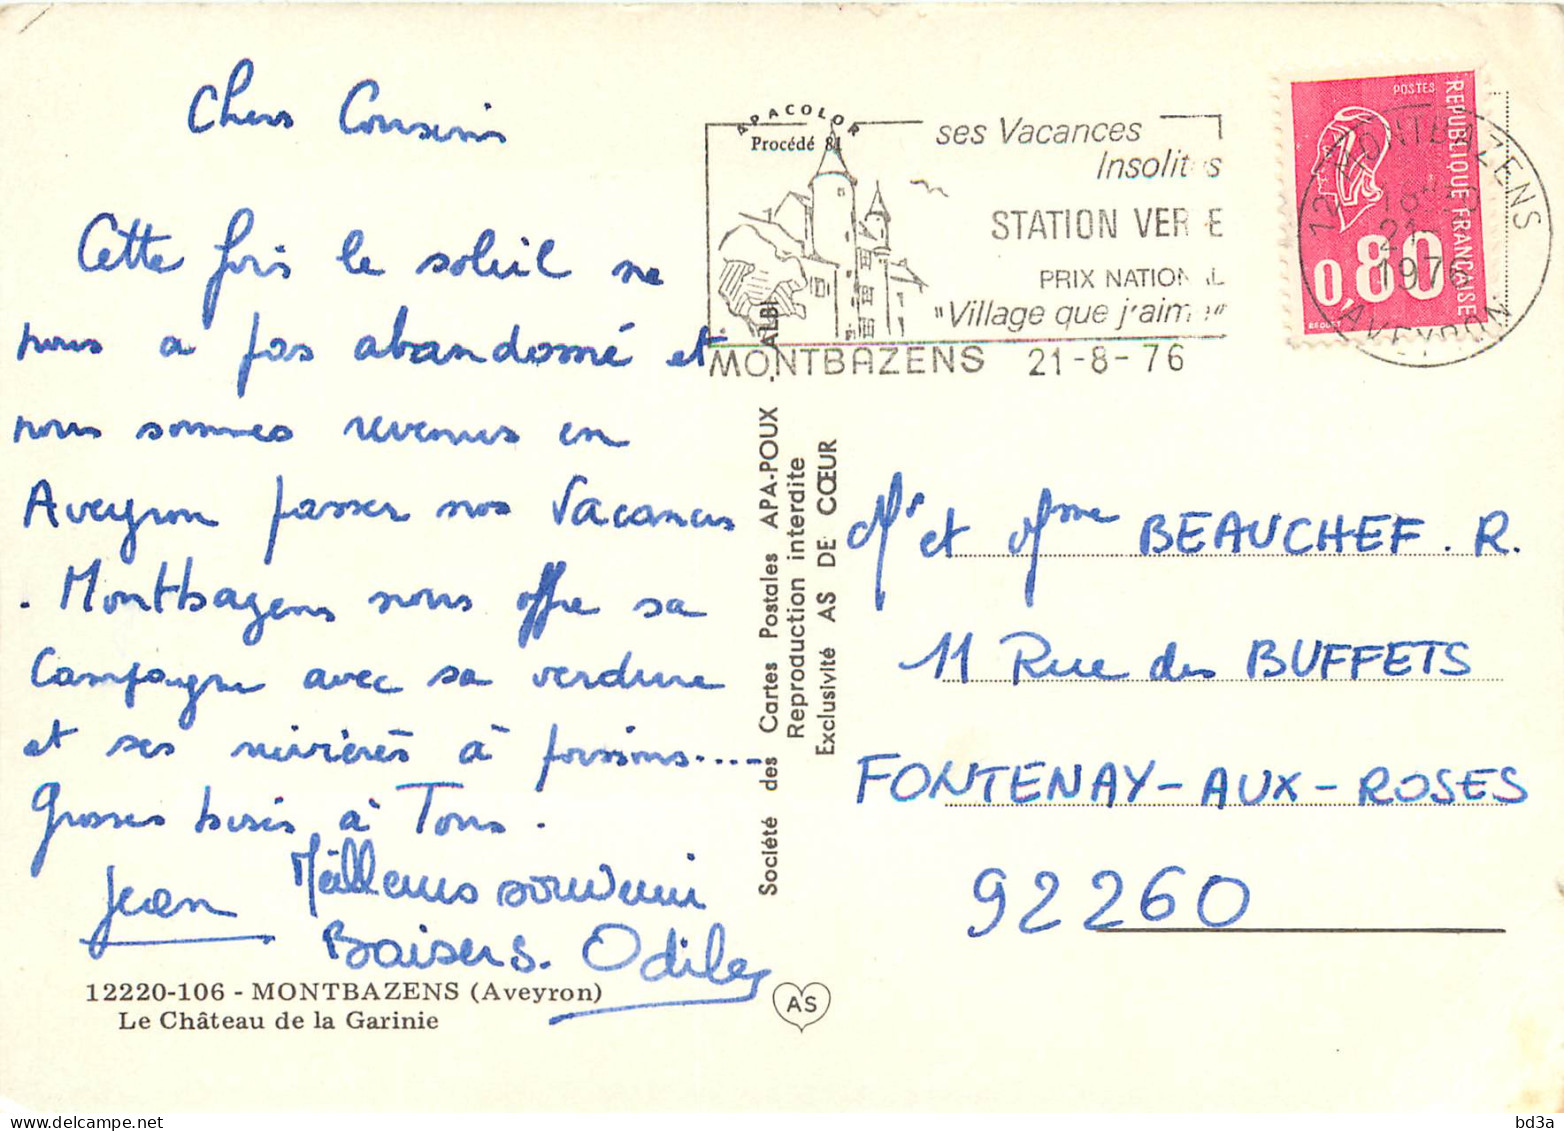 Chers Cousins
Cette fois le soleil ne
nous a pas abandonné et
nous sommes revenus en
Aveyron passer nos Vacances
. Montbazens nous offre sa
Campagne avec sa verdure
et ses rivières à poissons.....
Grosses bises à Tous.
Jean
Meilleurs souvenir
Baisers. Odile
12220-106 - MONTBAZENS (Aveyron)
Le Château de la Garinie
APACOLOR
Procédé 81
ses Vacances
Insolites
STATION VERTE
PRIX NATIONAL
"Village que j'aime"
MONTBAZENS 21-8-76
POSTES
REPUBLIQUE FRANÇAISE
0,80
BEQUET
12 MONTBAZENS
21
1976
AVEYRON
Société des Cartes Postales APA-POUX - ALBI
Reproduction interdite
Exclusivité AS DE CŒUR
Mr et Mme BEAUCHEF. R.
11 Rue des BUFFETS
FONTENAY-AUX-ROSES
92260
AS
bd3a